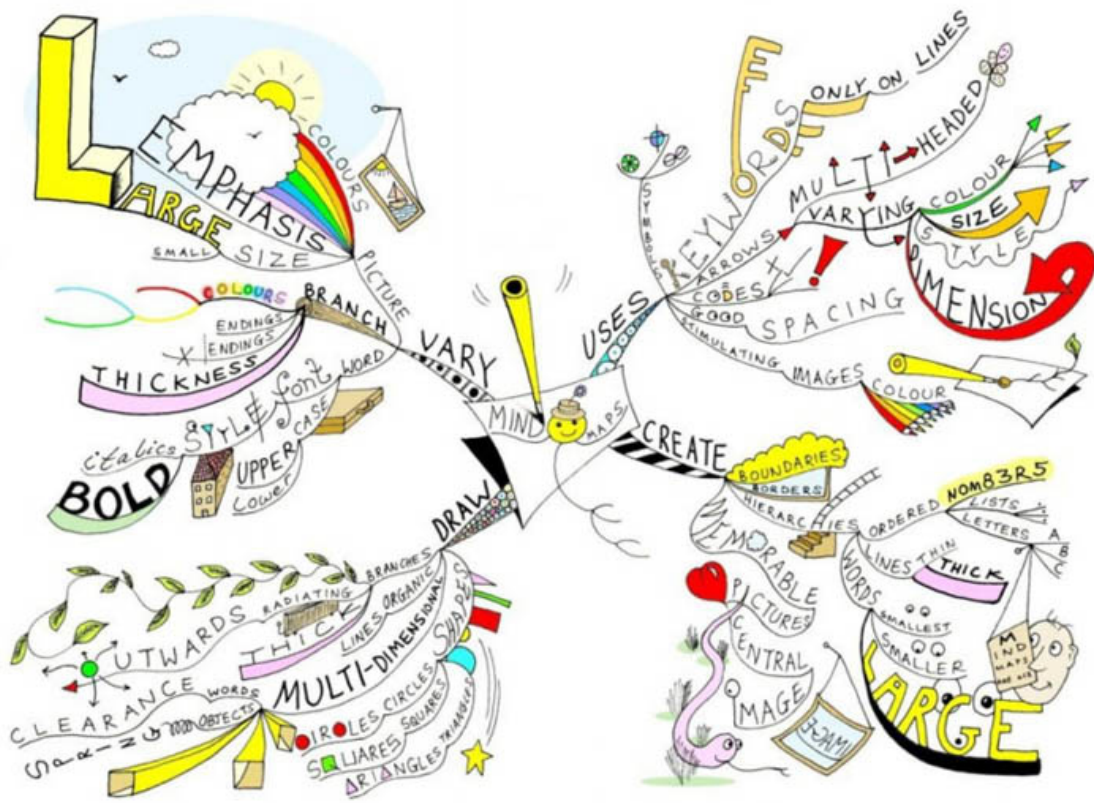 MIND MAPS
VARY
PICTURE
COLOURS
EMPHASIS
SIZE
LARGE
SMALL
BRANCH
COLOURS
ENDINGS
ENDINGS
THICKNESS
WORD
font
STYLE
italics
BOLD
CASE
UPPER
Lower
USES
SYMBOLS
KEYWORDS
ONLY ON LINES
ARROWS
MULTI HEADED
VARYING
COLOUR
SIZE
STYLE
DIMENSION
CODES
GOOD
SPACING
STIMULATING
IMAGES
COLOUR
CREATE
BOUNDARIES
BORDERS
HIERARCHIES
ORDERED
NOM83R5
LISTS
LETTERS
A
B
C
LINES
THIN
THICK
WORDS
SMALLEST
SMALLER
LARGE
MIND
MAPS
MEMORABLE
PICTURES
CENTRAL
IMAGE
IMAGE
DRAW
BRANCHES
RADIATING
OUTWARDS
ORGANIC
LINES
THICK
MULTI-DIMENSIONAL
WORDS
CLEARANCE
OBJECTS
SHAPES
CIRCLES
CIRCLES
SQUARES
SQUARES
TRIANGLES
TRIANGLES